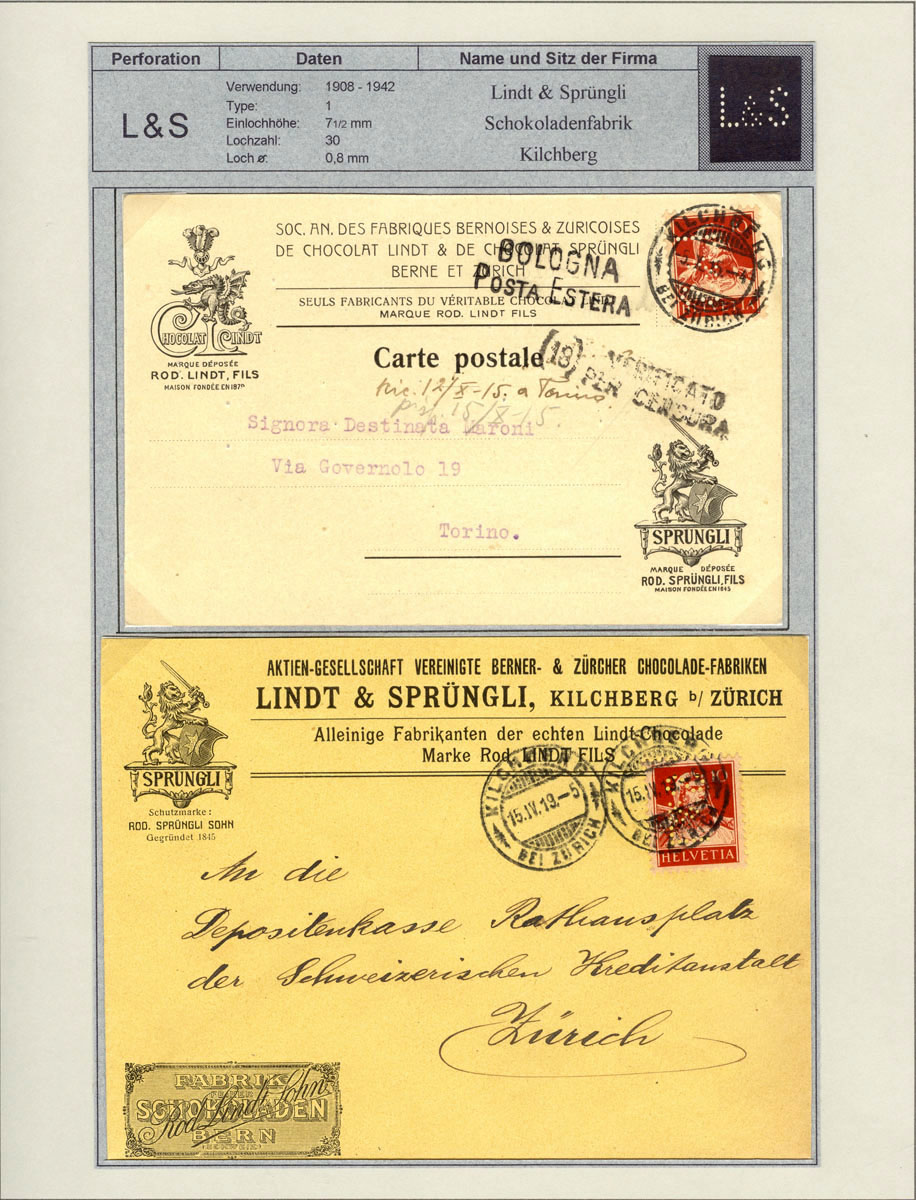 Perforation
Daten
Name und Sitz der Firma
L&S
Verwendung: 1908 - 1942
Type: 1
Einlochhöhe: 7 1/2 mm
Lochzahl: 30
Loch ø: 0,8 mm
Lindt & Sprüngli
Schokoladenfabrik
Kilchberg
L&S
SOC. AN. DES FABRIQUES BERNOISES & ZURICOISES
DE CHOCOLAT LINDT & DE CHOCOLAT SPRÜNGLI
BERNE ET ZURICH
SEULS FABRICANTS DU VÉRITABLE
MARQUE ROD. LINDT FILS
CHOCOLAT LINDT
MARQUE DÉPOSÉE
ROD. LINDT, FILS
MAISON FONDÉE EN 187
BOLOGNA
POSTA ESTERA
KILCHBERG
BEI ZÜRICH
Carte postale
(18) VERIFICATO
PER CENSURA
Ric. 12/X-15. a Torino
15/X-15.
Signora Destinata Maroni
Via Governolo 19
Torino.
SPRÜNGLI
MARQUE DÉPOSÉE
ROD. SPRÜNGLI, FILS
MAISON FONDÉE EN 1845
AKTIEN-GESELLSCHAFT VEREINIGTE BERNER- & ZÜRCHER CHOCOLADE-FABRIKEN
LINDT & SPRÜNGLI, KILCHBERG b/ ZÜRICH
Alleinige Fabrikanten der echten Lindt-Chocolade
Marke Rod. LINDT FILS
SPRÜNGLI
Schutzmarke:
ROD. SPRÜNGLI SOHN
Gegründet 1845
KILCHBERG
15.IV.19.-5
BEI ZÜRICH
KILCHBERG
15.IV.19.
BEI ZÜRICH
HELVETIA
An die
Depositenkasse Rathausplatz
der Schweizerischen Kreditanstalt
Zürich
FABRIK
FEINER
SCHOKOLADEN
Rod. Lindt Sohn
BERN
(SCHWEIZ)